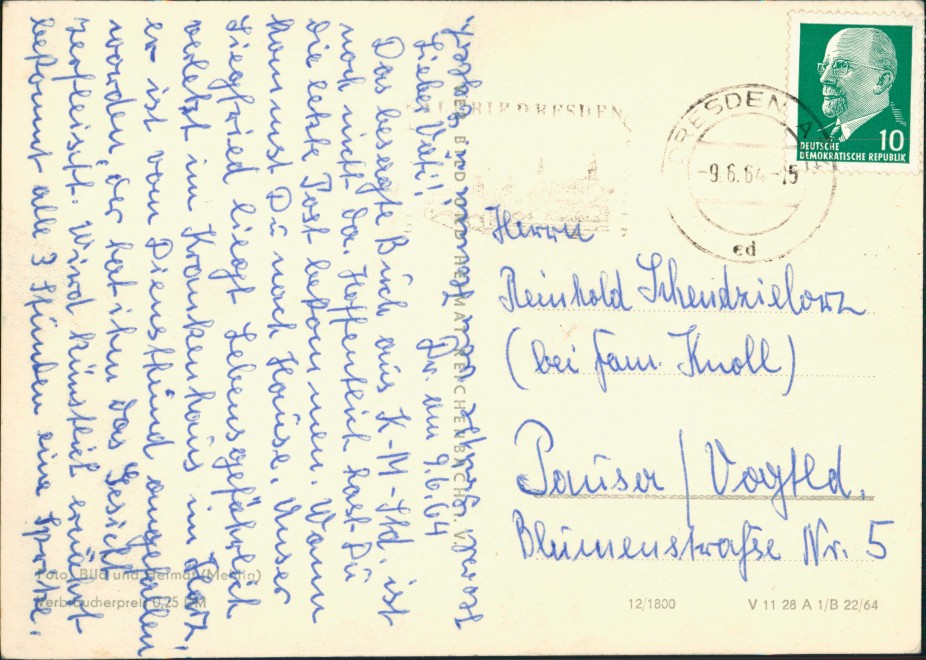 Dr. am 9.6.64
Lieber Vati!
Das besagte Buch aus K-M-Std. ist
noch nicht da. Hoffentlich hast Du
die letzte Post bekommen. Wann
kommst Du nach Hause. Unser
Siegfried liegt Lebensgefährlich
verletzt im Krankenhaus im Harz,
er ist von Diensthund angefallen
worden, der hat ihm das Gesicht
zerfleischt. Wird künstlich ernährt
bekommt alle 3 Stunden eine Spritze.
BILD UND HEIMAT REICHENBACH I. V.
Foto: Bild und Heimat (Methin)
Verbraucherpreis 0,25 DM
DRESDEN
DRESDEN A
-9.6.64-15
ed
10
DEUTSCHE
DEMOKRATISCHE REPUBLIK
Herrn
Reinhold Schendzielorz
(bei Fam. Knoll)
Pausa / Vogtld.
Blumenstraße Nr. 5
12/1800
V 11 28 A 1/B 22/64